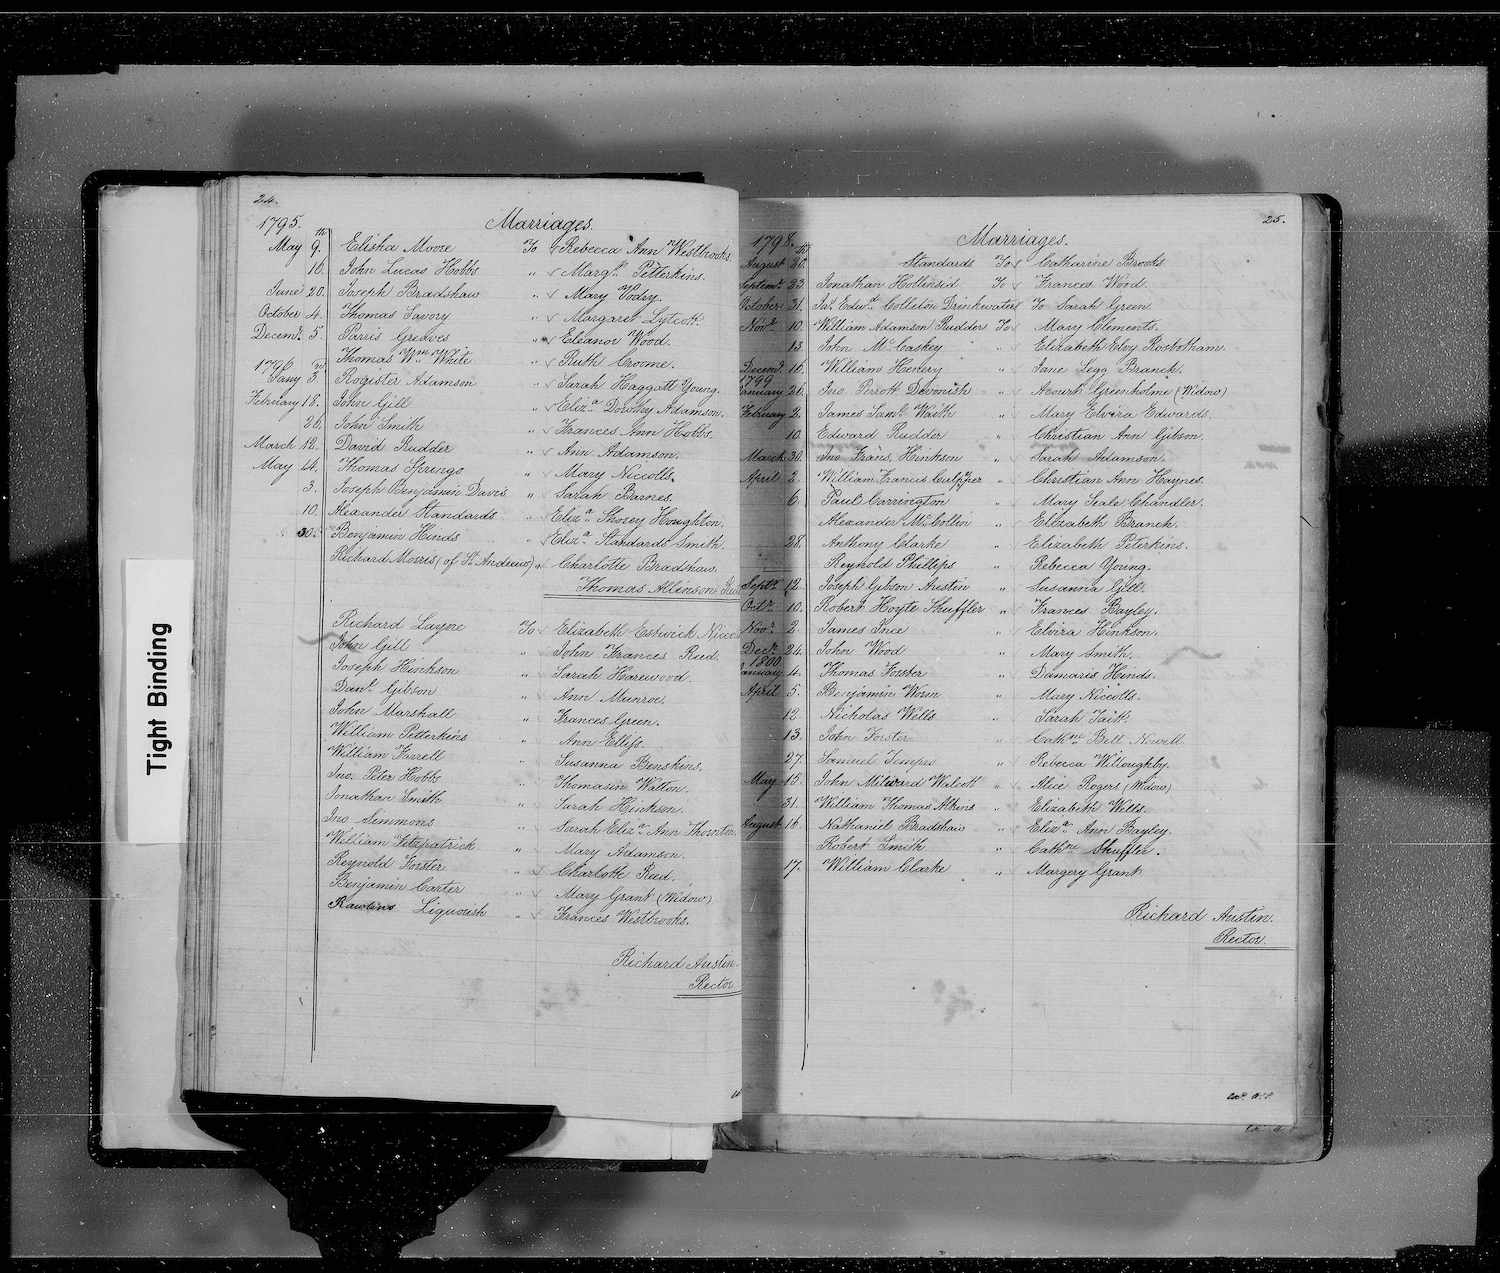 24.
1795.
Marriages.
May 9.th Elisha Moore To Rebecca Ann Westbrooks.
16. John Lucas Hobbs " Margt. Petterkins.
June 20. Joseph Bradshaw " Mary Vodry.
October 4. Thomas Savory " Margaret Lytcott.
Decemr. 5. Parris Greaves " Eleanor Wood.
Thomas Wm. White " Ruth Croome.
1796
Jany 3.rd Rogister Adamson " Sarah Haggatt Young.
February 18. John Gill " Eliza. Dowthy Adamson.
26. John Smith " Frances Ann Hobbs.
March 12. David Rudder " Ann Adamson.
May 14. Thomas Springs " Mary Niccolls.
3. Joseph Benjamin Davis " Sarah Barnes.
10. Alexander Standards " Eliza. Shorey Houghton.
30. Benjamin Hinds " Eliza. Standards Smith.
Richard Morris (of St. Andrews) " Charlotte Bradshaw.
Thomas Allinson
Richard Layne To Elizabeth Estwick
John Gill " John Frances Reed.
Joseph Hinkson " Sarah Harewood.
Danl. Gibson " Ann Munroe.
John Marshall " Frances Green.
William Petterkins " Ann Elliss.
William Farrell " Susanna Benskins.
Jno. Peter Hobbs " Thomasin Walton.
Jonathan Smith " Sarah Hinkson.
Jno Simmons " Sarah Eliza. Ann Thornton
William Fitzpatrick " Mary Adamson.
Reynold Forster " Charlotte Reed.
Benjamin Carter " Mary Grant (Widow)
Rawlins Liquorish " Frances Westbrooks.
Richard Austin.
Rector
Tight Binding
25.
1798.
Marriages.
August 20.th Standards To Catharine Brooks
Septemr. 23. Jonathan Hollinsid To Frances Wood.
October 31. Jas. Edwd. Colleton Drinkwater To Sarah Green.
Novr. 10. William Adamson Rudder To Mary Clements.
13. John McCaskey " Elizabeth Evy Rosbotham.
Decemr. 16. William Henery " Jane Legg Branch.
1799
January 26. Jno Perrott Devonish " Acourt Grienholme (Widow)
February 2. James Saml. Waith " Mary Elvira Edwards.
10. Edward Rudder " Christian Ann Gibson.
March 30. Jno Frans. Hinkson " Sarah Adamson.
April 2. William Francis Culpper " Christian Ann Haynes.
6. Paul Carrington " Mary Seale Chandler.
Alexander McCollin " Elizabeth Branch.
28. Anthony Clarke " Elizabeth Peterkins.
Reynold Phillips " Rebecca Young.
Septr. 12. Joseph Gibson Austin " Susanna Gill.
Octr. 10. Robert Hoyte Shuffler " Frances Bayley.
Novr. 2. James Ince " Elvira Hinkson.
Decr. 24. John Wood " Mary Smith.
1800
January 4. Thomas Forster " Damaris Hinds.
April 5. Benjamin Worm " Mary Niccolls.
12 Nicholas Wells " Sarah Tait.
13. John Forster " Cathne Bell Nowell
27. Samuel Tempro " Rebecca Willoughby.
May 15. John Milward Walcott " Alice Rogers (Widow)
31. William Thomas Atkins " Elizabeth Wells.
August 16. Nathaniel Bradshaw " Eliza. Ann Bayley.
Robert Smith " Cathne Shuffler.
17. William Clarke " Margery Grant
Richard Austin.
Rector.